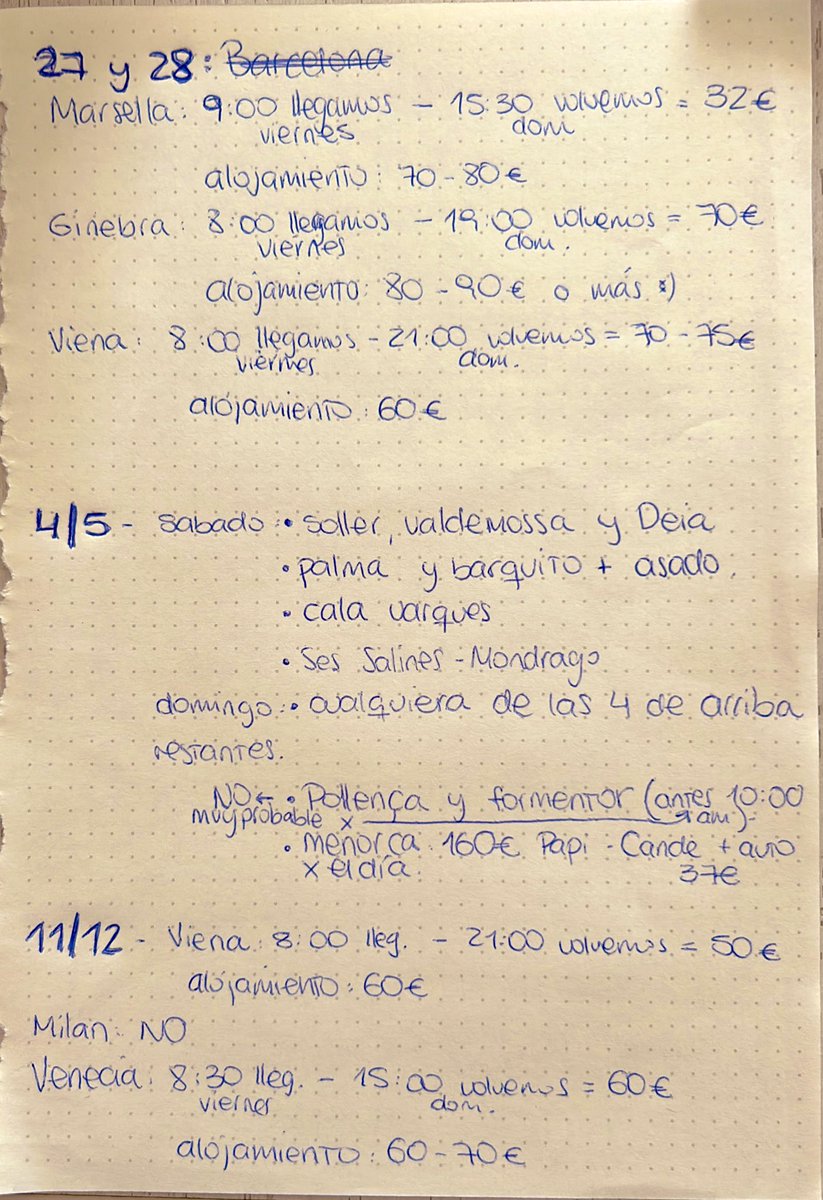 27 y 28: Barcelona
Marsella: 9:00 llegamos - 15:30 volvemos = 32€
viernes dom
alojamiento: 70-80€
Ginebra: 8:00 llegamos - 19:00 volvemos = 70€
viernes dom.
alojamiento: 80-90€ o más :)
Viena: 8:00 llegamos - 21:00 volvemos = 70-75€
viernes dom.
alojamiento: 60€
4/5 - sabado: • soller, valdemossa y Deia
• palma y barquito + asado.
• cala varques
• Ses Salines - Mondrago
domingo: • cualquiera de las 4 de arriba
restantes.
NO ← • Pollença y formentor (antes 10:00
muy probable x am).
• menorca: 160€ Papi - Cande + auto
x el día. 37€
11/12 - Viena: 8:00 lleg. - 21:00 volvemos = 50€
alojamiento: 60€
Milan: NO
Venecia: 8:30 lleg. - 15:00 volvemos = 60€
viernes dom.
alojamiento: 60-70€